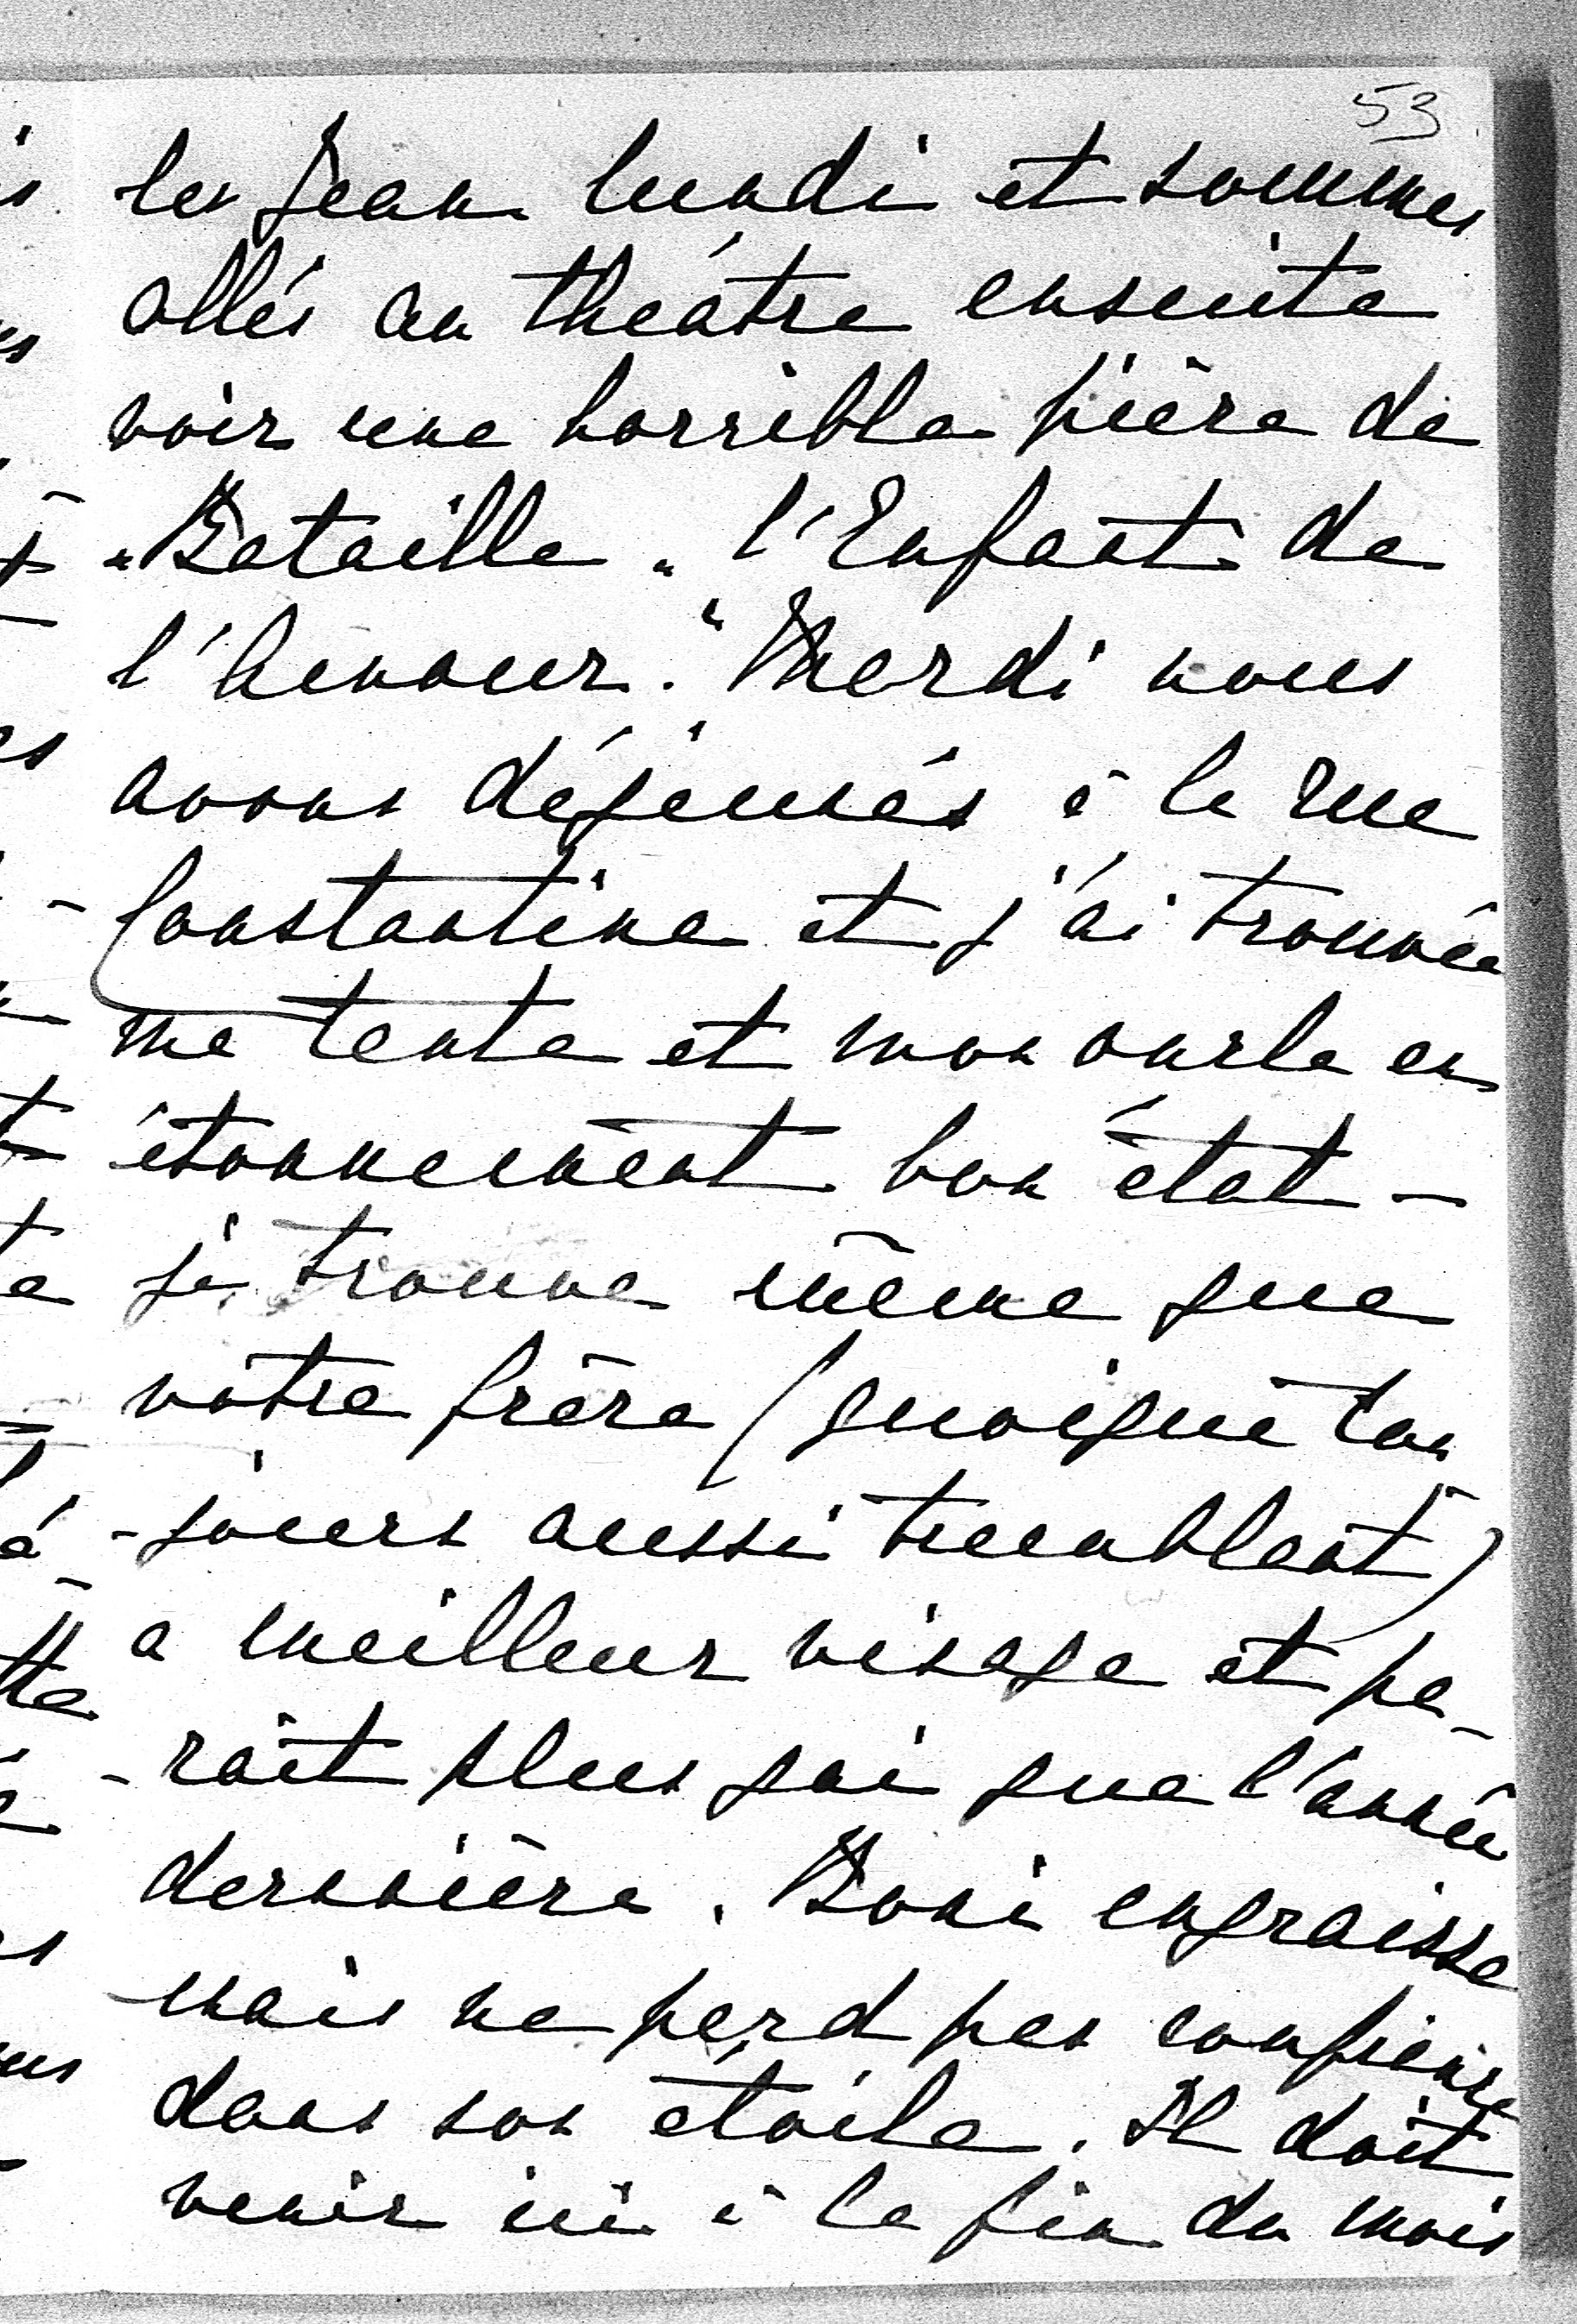 53
les Jean lundi et sommes
allés au théâtre ensuite
voir une horrible pièce de
"Bataille" "l'Enfant de
l'amour." Mardi nous
avons déjeunés à la rue
Constantine et j'ai trouvée
ma tante et mon oncle en
étonnement bon état –
je trouve même que
votre frère (quoique tou
-jours aussi tremblant)
a meilleur visage et pa-
-rait plus gai que l'année
dernière. Boni engraisse
mais ne perd pas confiance
dans son étoile. Il doit
venir ici à la fin du mois